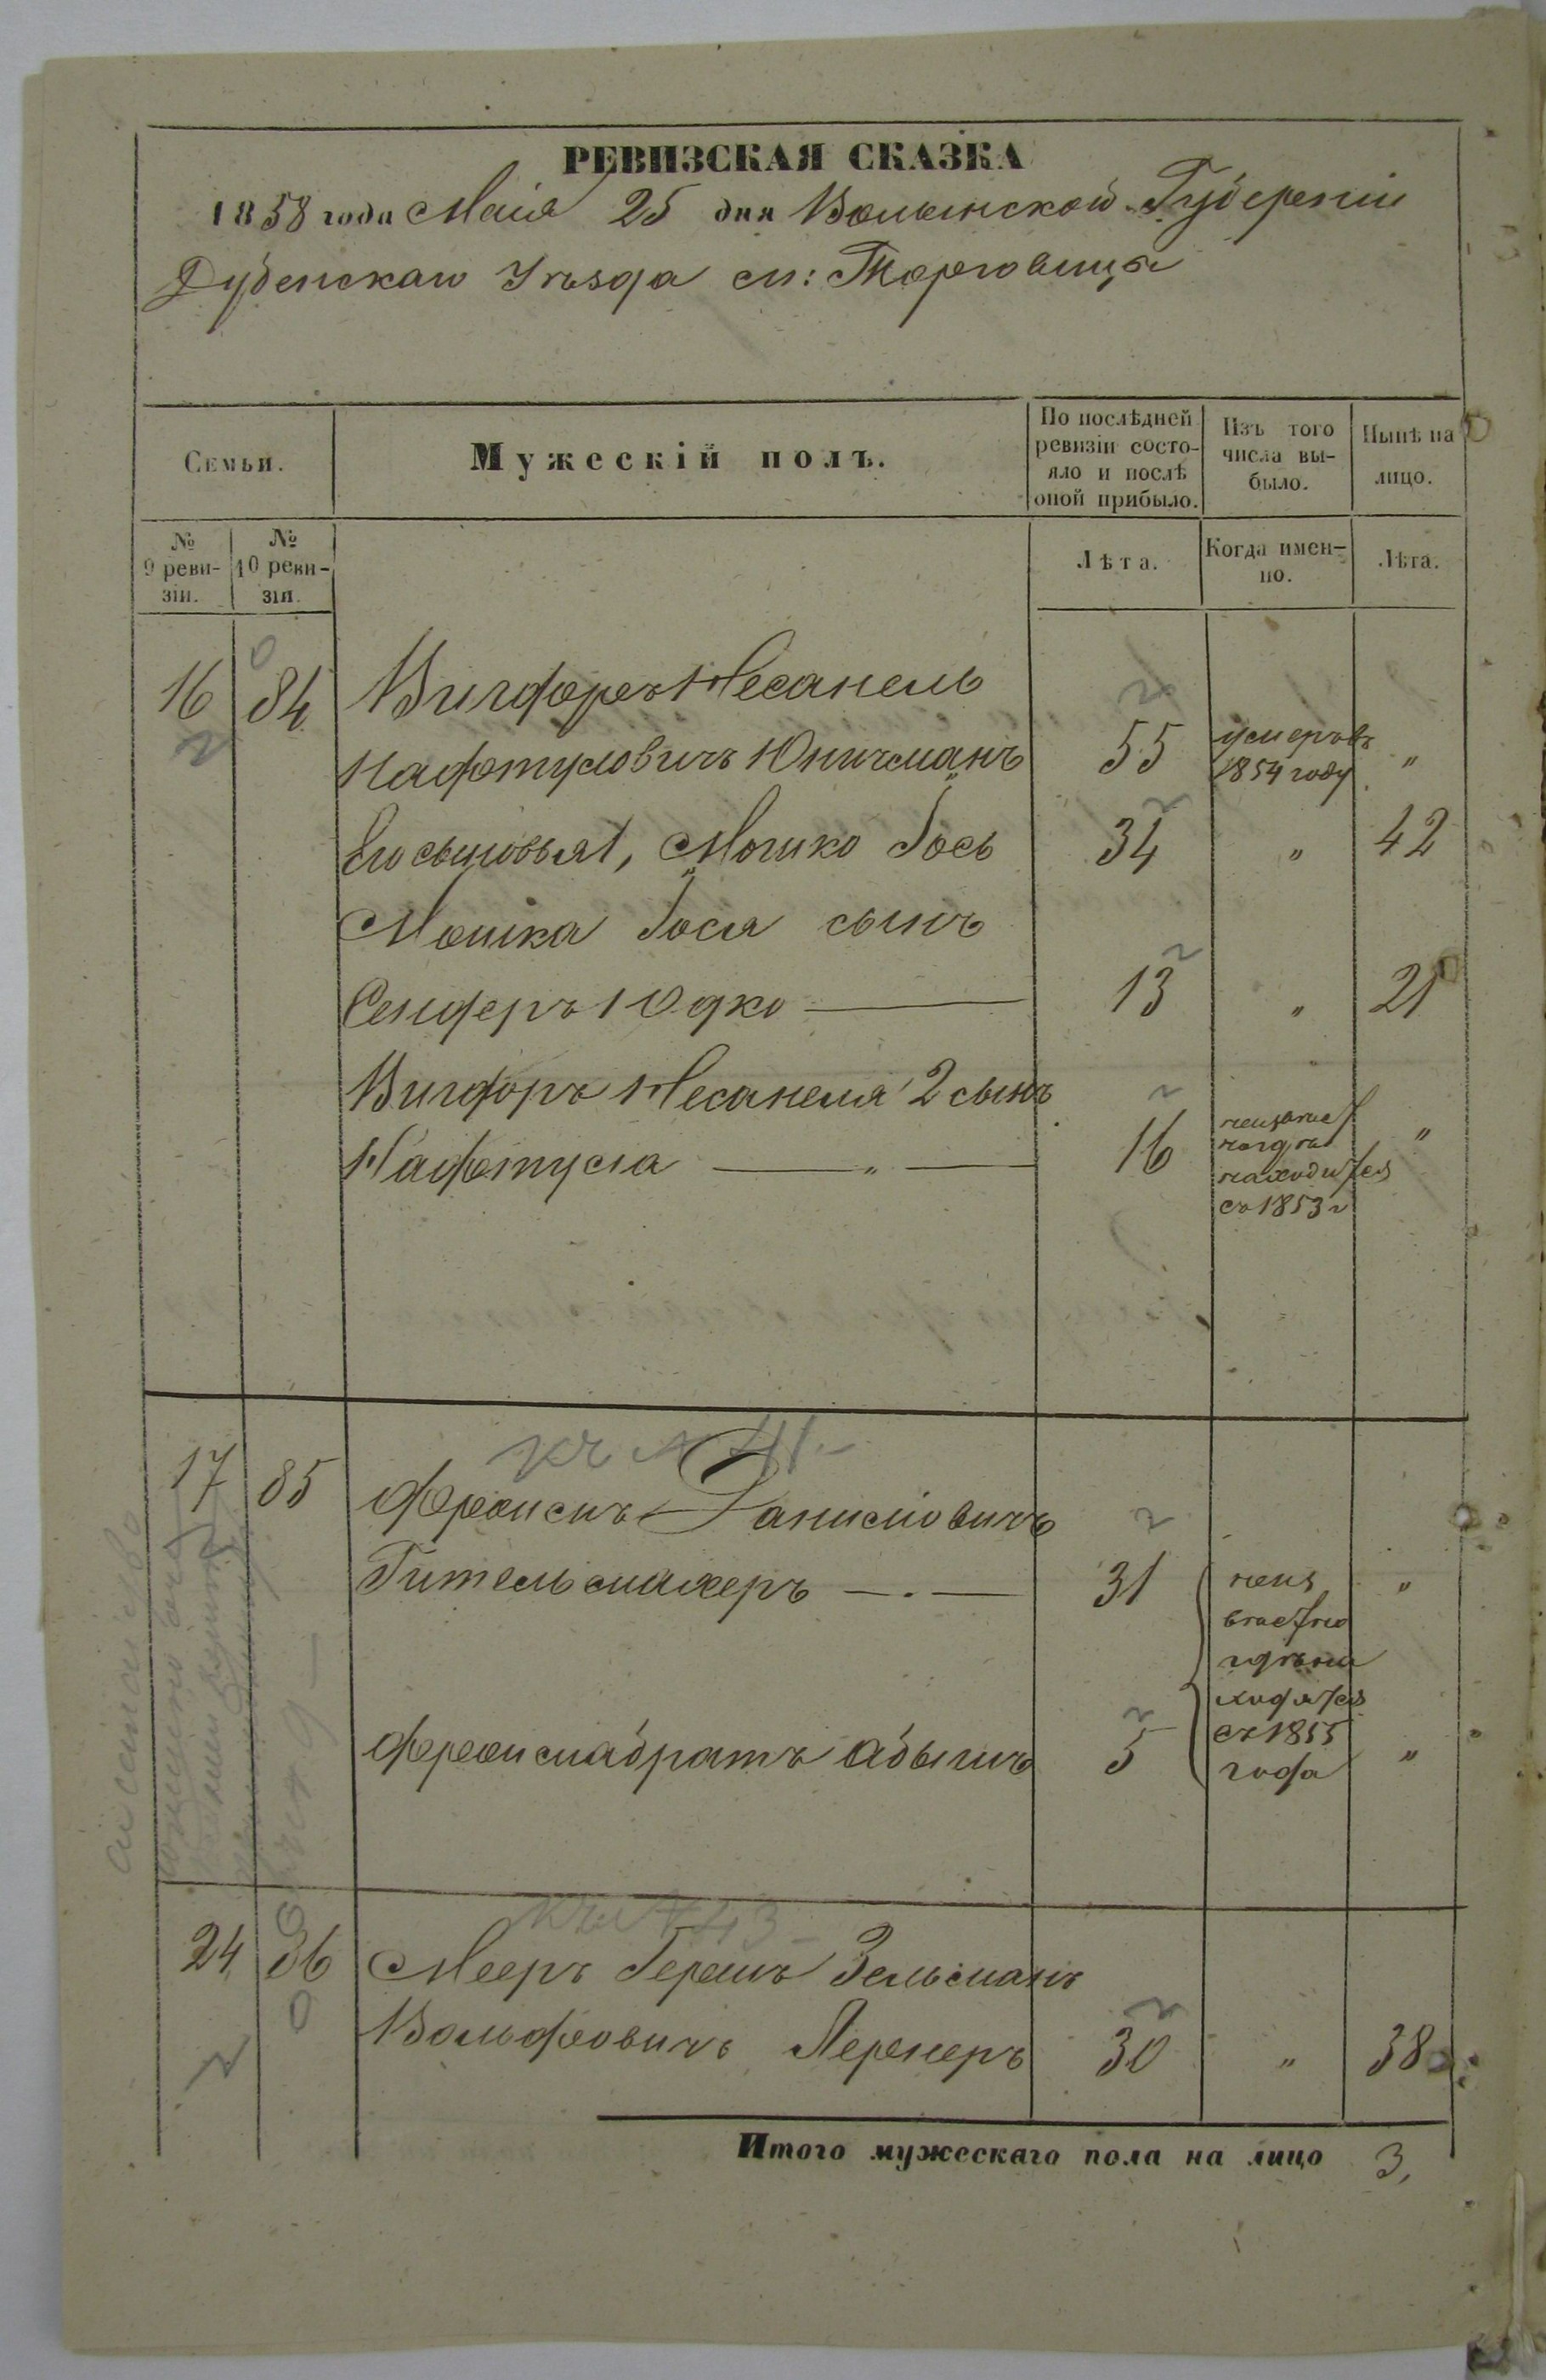 РЕВИЗСКАЯ СКАЗКА
1858 года Маія 25 дня Волынской Губерніи
Дубенскаго Уѣзда м: Торговицы
Семьи.
Мужескій полъ.
По послѣдней ревизіи состо-
яло и послѣ
оной прибыло.
Изъ того
числа вы-
было.
Нынѣ на
лицо.
№
9 реви-
зіи.
№
10 реви-
зіи.
Лѣта.
Когда имен-
но.
Лѣта.
16 84 Вигдоръ Несанель
Нафтуловичъ 55 умеръ въ "
1854 году
Его сыновья 1, Мошко Іось 34 " 42
Мошка Іося сынъ
Сендеръ Юдко 13 " 21
Вигдоръ Несанеля 2 сынъ
Нафтула " 16 "
находится
съ 1853 г
къ № 41.
17 85 Фроимъ Даниловичъ
Гительмахеръ 31 "
съ 1855
года
Фроима братъ 5 "
къ № 43
24 86 Мееръ Гершъ Зельманъ
Вольфовичъ Лернеръ 30 " 38
Итого мужескаго пола на лицо 3,